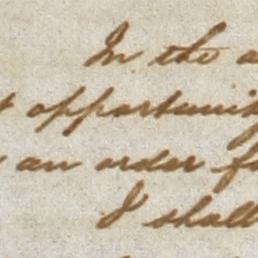 In the a
t opportunit
an order f
I shall